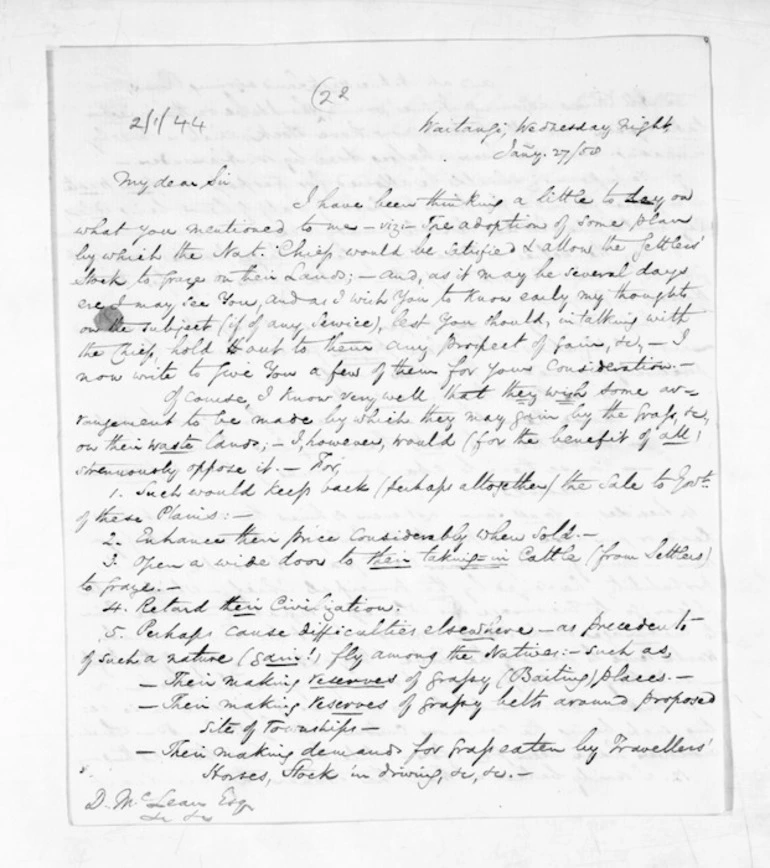 (22
2/1/44
Waitangi, Wednesday Night,
Jany. 27/58
My dear Sir
I have been thinking a little to day on
what you mentioned to me – viz:– The adoption of some plan
by which the Nat. Chiefs would be satisfied & allow the Settlers'
Stock to graze on their Lands; – and, as it may be several days
ere I may see You, and as I wish You to know early my thoughts
on the subject (if of any service), lest You should, in talking with
the Chiefs, hold out to them any prospect of gain, &c, – I
now write to give You a few of them for your consideration. –
Of course, I know very well that they wish some ar-
rangement to be made by which they may gain by the Grass, &c,
on their waste lands; – I, however, would (for the benefit of all)
strenuously oppose it. – For,
1. Such would keep back (perhaps altogether) the Sale to Govt.
of these Plains: –
2. Enhance their price considerably when sold. –
3. Open a wide door to their taking-in Cattle (from Settlers)
to graze. –
4. Retard their Civilization.
5. Perhaps cause difficulties elsewhere – as precedents
of such a nature (gain!) fly among the Natives: – such as,
– Their making reserves of grassy (Baiting) places. –
– Their making reserves of grassy belts around proposed
site of Townships –
– Their making demands for Grass eaten by Travellers'
Horses, Stock in driving, &c, &c. –
D. McLean Esq
&c &c